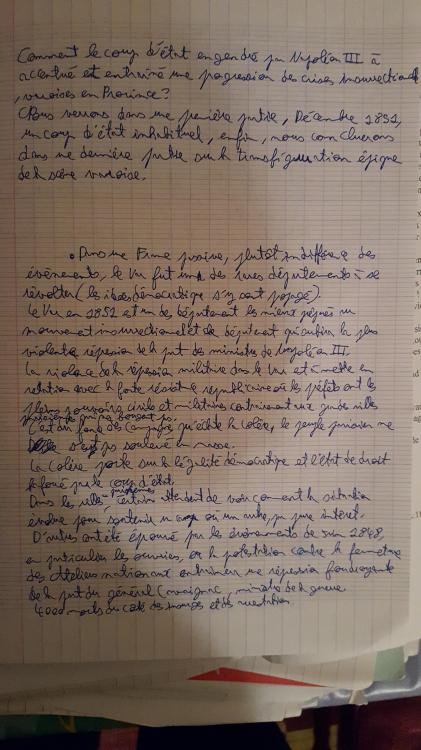 Comment le coup d'état engendré par Napoléon III à
accentué et entraîné une progression des crises insurrectionnel
, varoises en Provence?
Nous verrons dans une première partie, Décembre 1851,
un coup d'état inhabituel, enfin, nous concluerons
dans une dernière partie sur la transfiguration épique
de la scène varoise.
• Dans une France passive, plutôt indifférence des
évènements, le Var fut un des rares départements à se
révolter (les idées démocratique s'y sont propagé).
Le Var en 1851 et un des département les mieux préparé au
mouvement insurrectionnel et de département qui subira la plus
violente répression de la part des ministres de Napoléon III.
La violence de la répression militaire dans le Var et à mettre en
relation avec la forte résistance républicaine où les préfets ont les
pleins pouvoirs civils et militaires contrairement aux grandes villes
qui ne bougent pas.
C'est au fond des campagnes qu'éclate la colère, le peuple parisien ne
s'est pas soulevé en masse.
La colère porte sur la légalité démocratique et l'état de droit
bafoué par le coup d'état.
Dans les villes, certains attendent de voir comment la situation
évolue pour soutenir un camp où un autre, par pure intérêt.
D'autres ont été épuré par les évènements de juin 1848,
en particulier les ouvriers, or la protestation contre la fermeture
des Ateliers nationaux entraînera une répression foudroyante
de la part du général Cavaignac, ministre de la guerre
4000 morts du côté des insurgés et des arrestations.